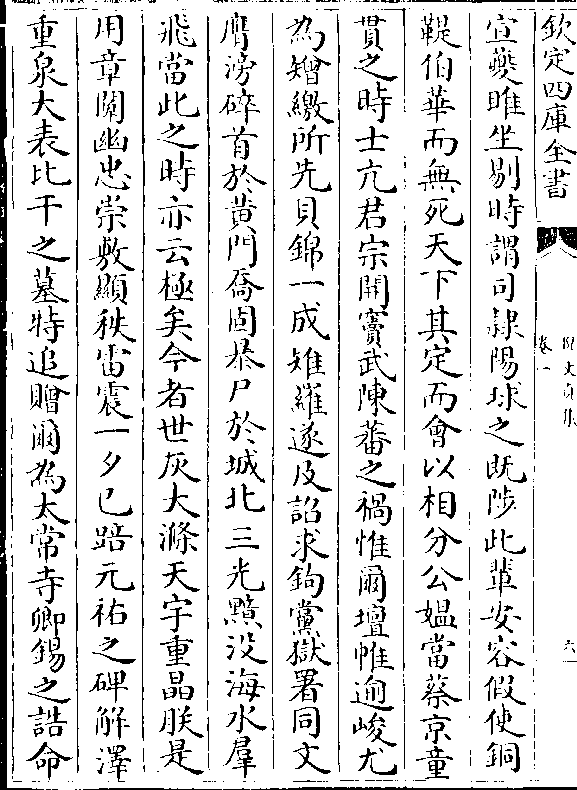 欽定四庫全書
卷一
宣夔睢坐剔時謂司隸陽球之既陟此輩安容假使銅
鞮伯華而無死天下其定而會以相分公媪當蔡京童
貫之時士亢君宗開竇武陳蕃之禍惟爾壇帷逾峻尤
為矰繳所先貝錦一成雉羅遂及詔求鉤黨獄署同文
膺滂碎首於黄門喬固暴尸於城北三光黯没海水羣
飛當此之時亦云極矣今者世灰大滌天宇重晶朕是
用章闡幽忠崇敷顯秩雷震一夕已踣元祐之碑解澤
重泉大表比干之墓特追贈爾為太常寺卿錫之誥命